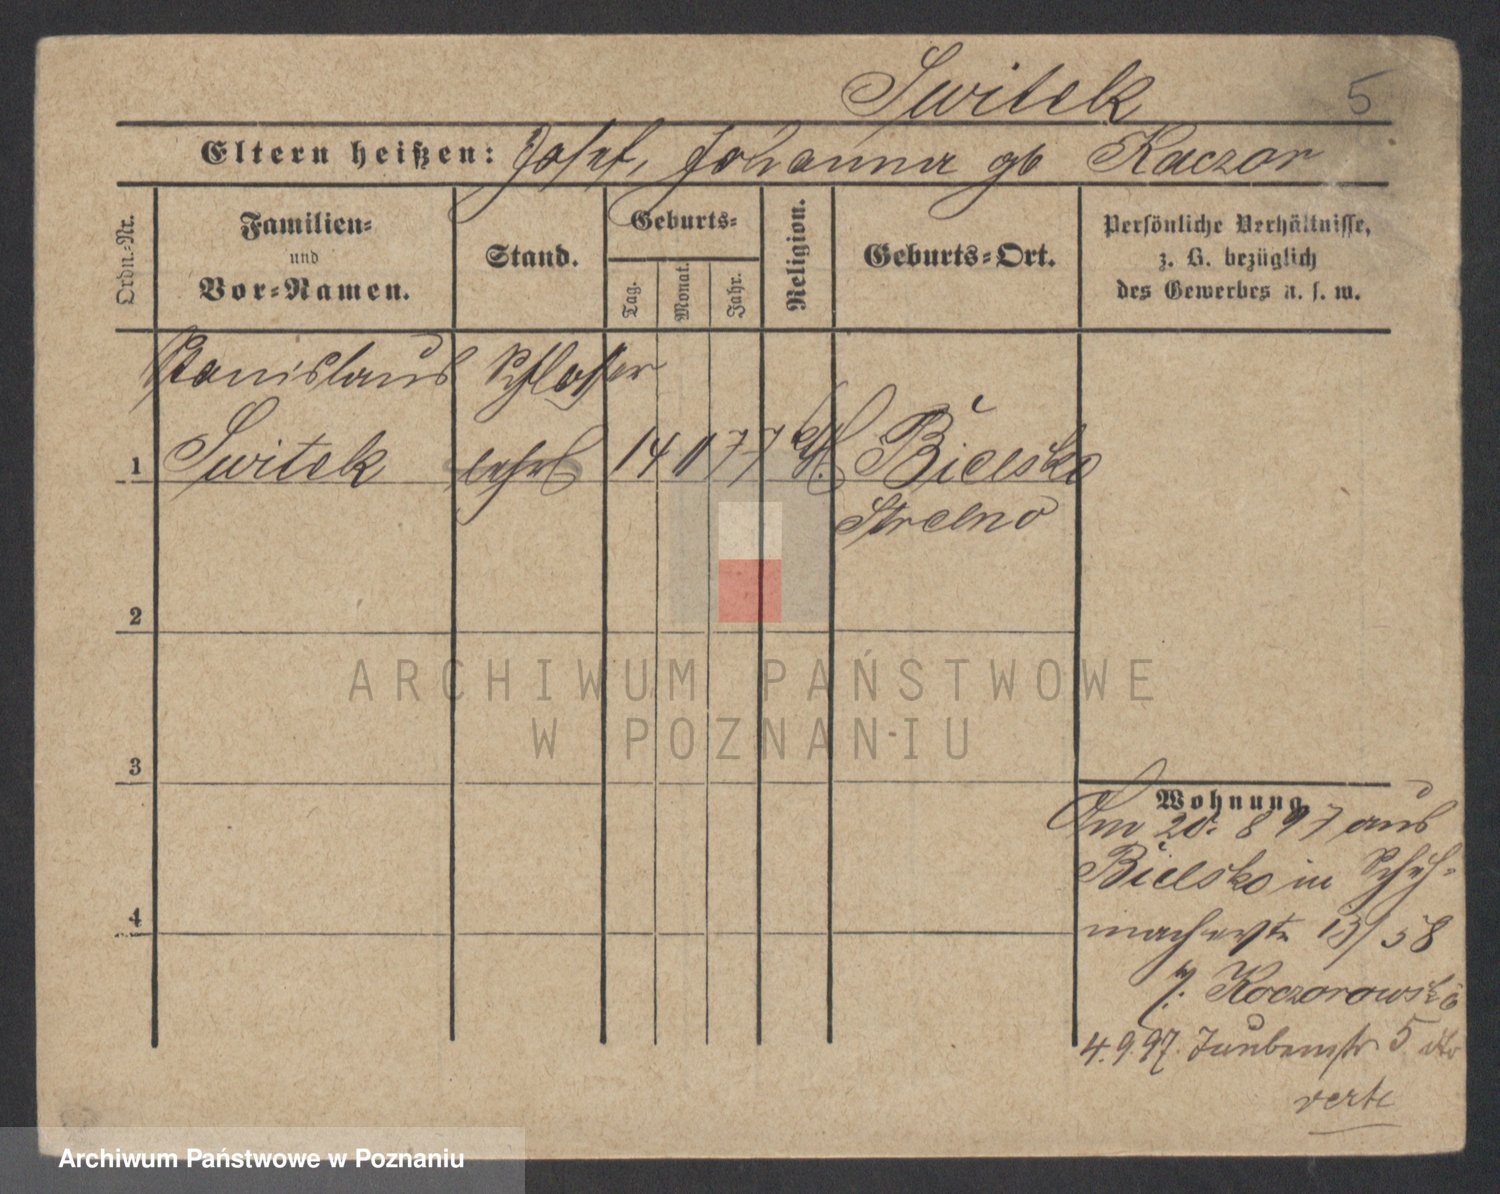 Switek 5
Eltern heißen: Josef, Johanna gb Kaczor
Ordn.-Nr.
Familien-
und
Vor-Namen.
Stand.
Geburts-
Tag.
Monat.
Jahr.
Religion.
Geburts-Ort.
Persönliche Verhältnisse,
z. B. bezüglich
des Gewerbes u. s. w.
Stanislaus Schlosser
1 Switek lehrl 14 77 Bielsko
Strelno
2
3
4
Wohnung
Am 20. 8 97 aus
Bielsko in Schuh-
macherstr 13/
Koczorowski
4.9.97. Taubenstr 5
verte
ARCHIWUM PAŃSTWOWE
W POZNANIU
Archiwum Państwowe w Poznaniu